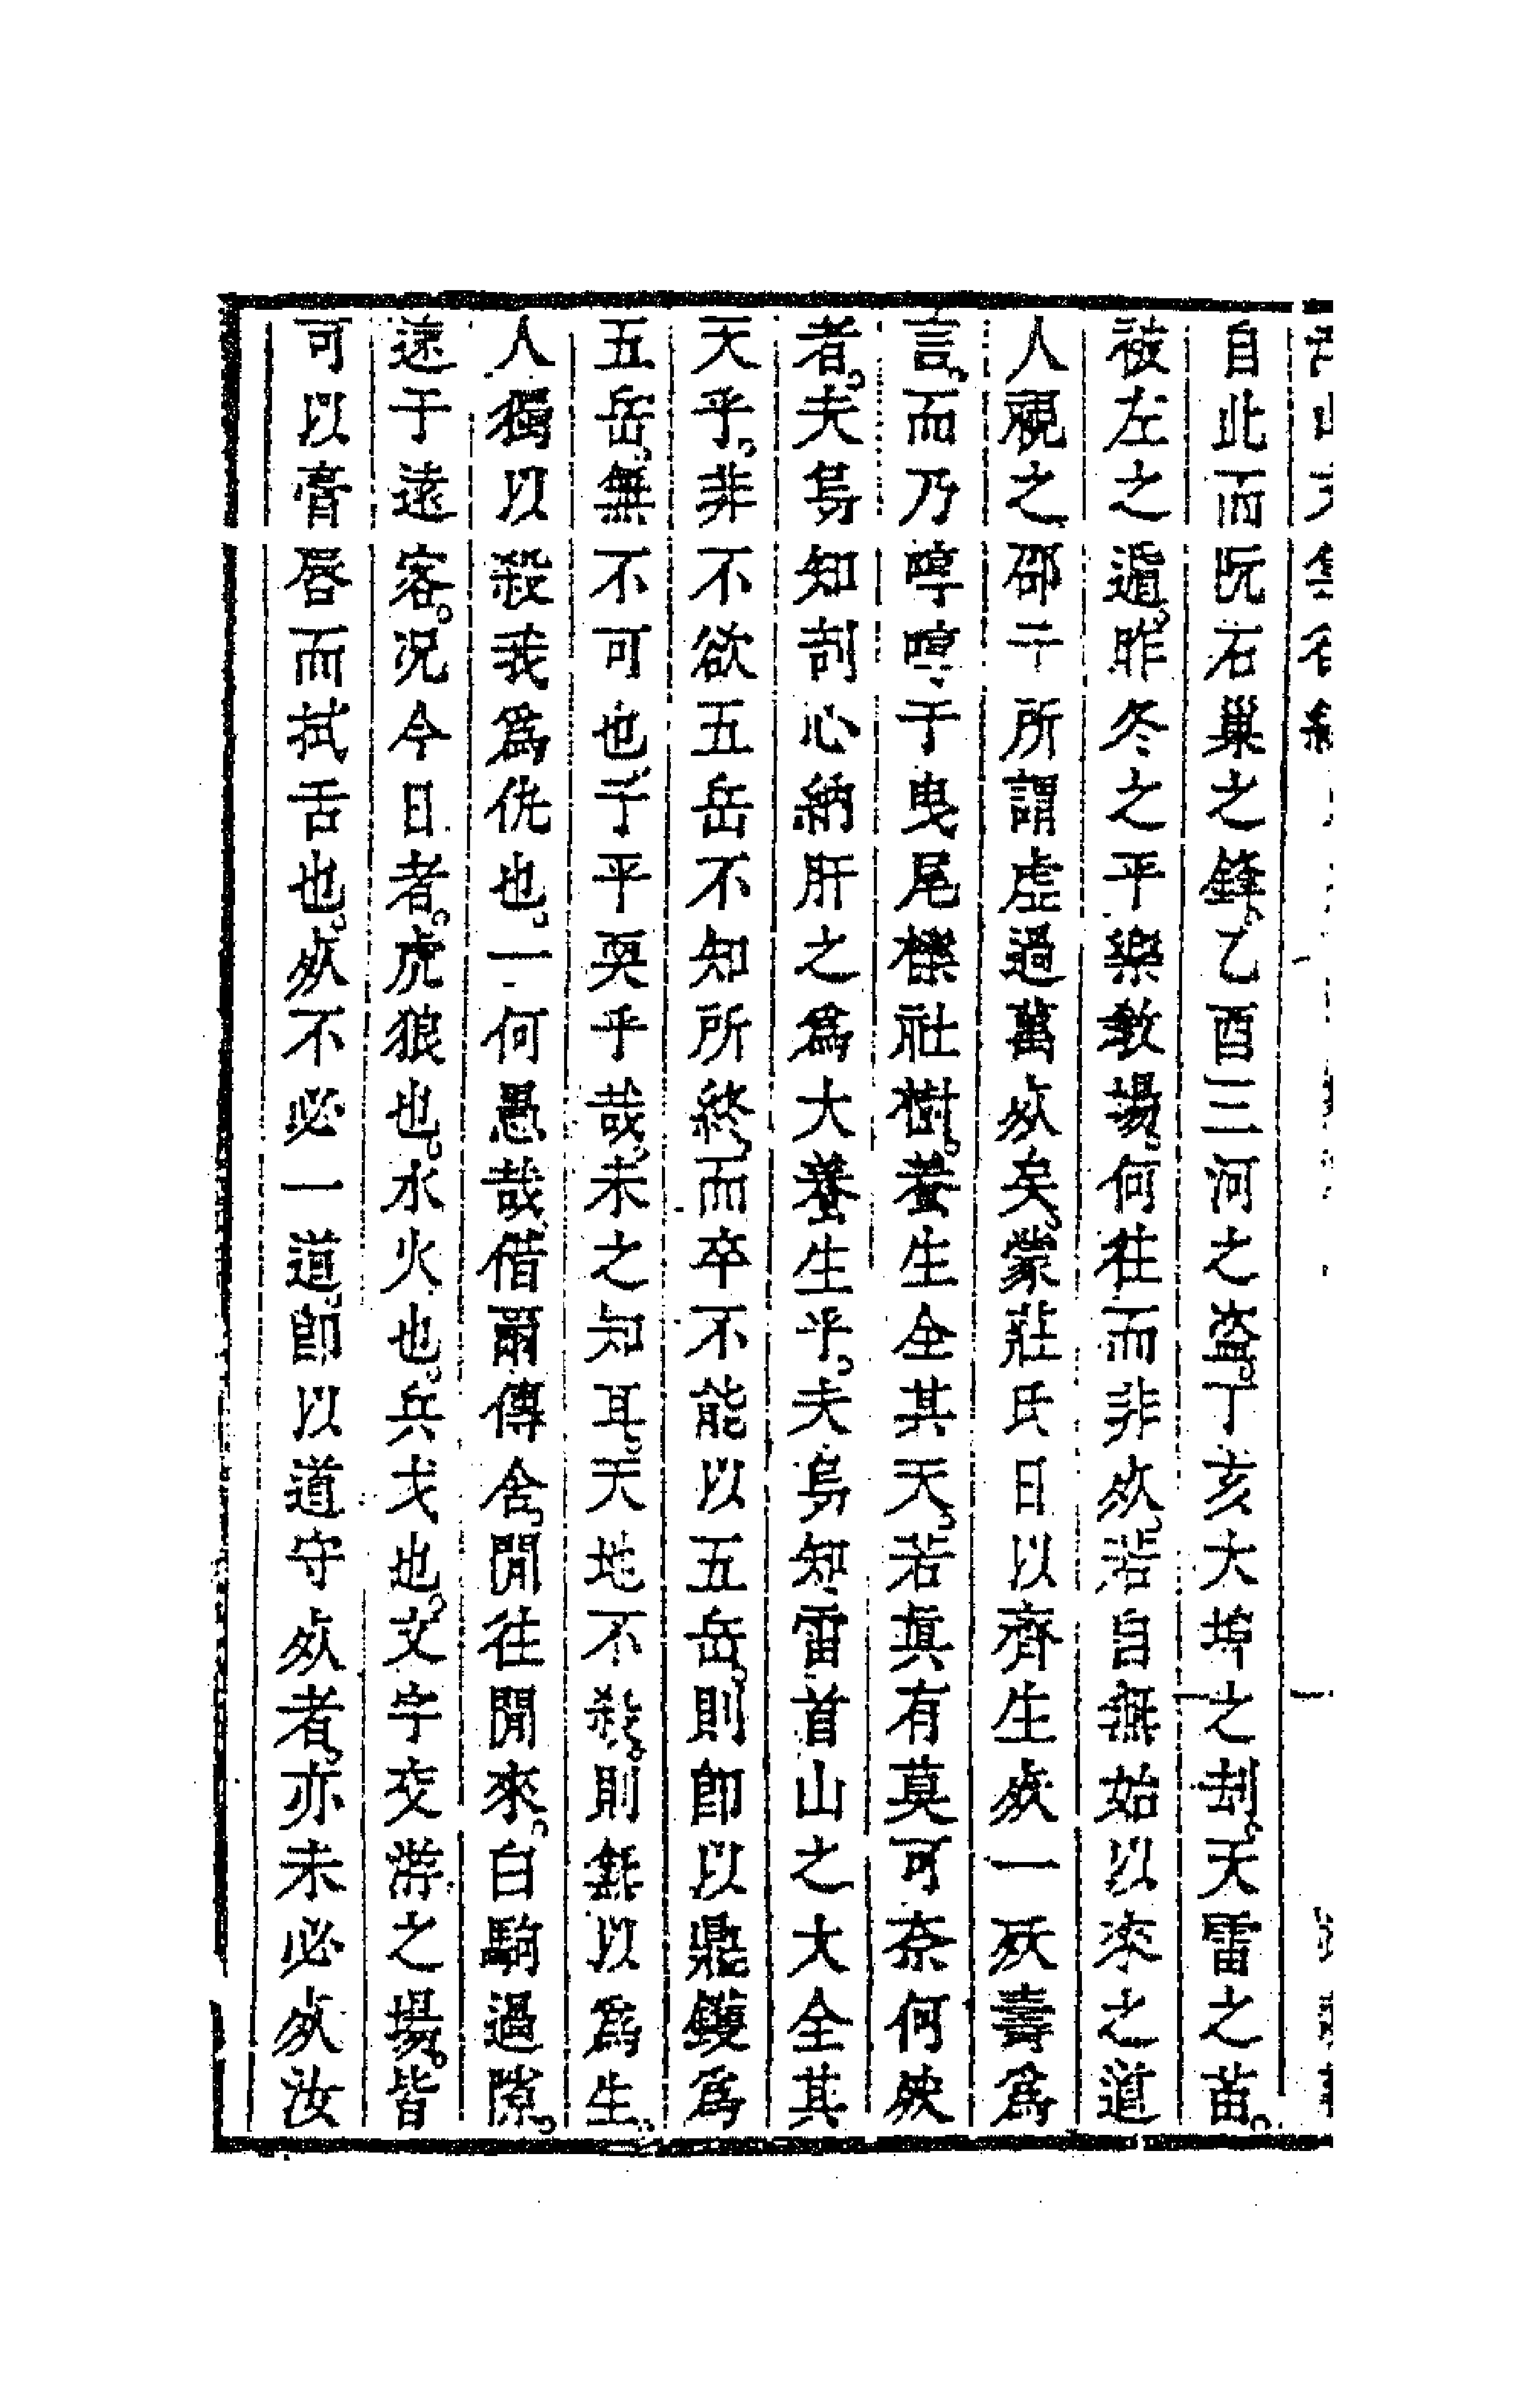 自此而阮石巢之鋒。乙酉三河之盜。丁亥大埠之刦。天雷之苗。
被左之遁。昨冬之平樂教場。何往而非死。若自無始以來之道
人視之。邵子所謂虛過萬死矣。蒙莊氏曰以齊生死一殀壽為
言。而乃嘐嘐于曳尾櫟社樹。養生全其天。若眞有莫可奈何
者。夫烏知剖心納肝之爲大養生乎。夫烏知雷首山之大全其
天乎。非不欲五岳不知所終。而卒不能以五岳。則卽以鼎鑊爲
五岳。無不可也。子平耍乎哉。未之知耳。天地不殺。則無以爲生。
人獨以殺我爲仇也。一何愚哉。借爾傳舍。閒往閒來。白駒過隙。
遠于遠客。況今日者。虎狼也。水火也。兵戈也。文字交游之場。皆
可以膏唇而拭舌也。死不必一道。卽以道守死者。亦未必死汝